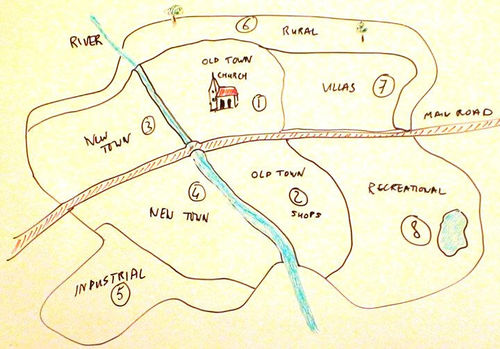 6
RURAL
RIVER
OLD TOWN
CHURCH
1
VILLAS
7
MAIN ROAD
NEW
TOWN
3
4
NEW TOWN
OLD TOWN
2
SHOPS
RECREATIONAL
8
INDUSTRIAL
5